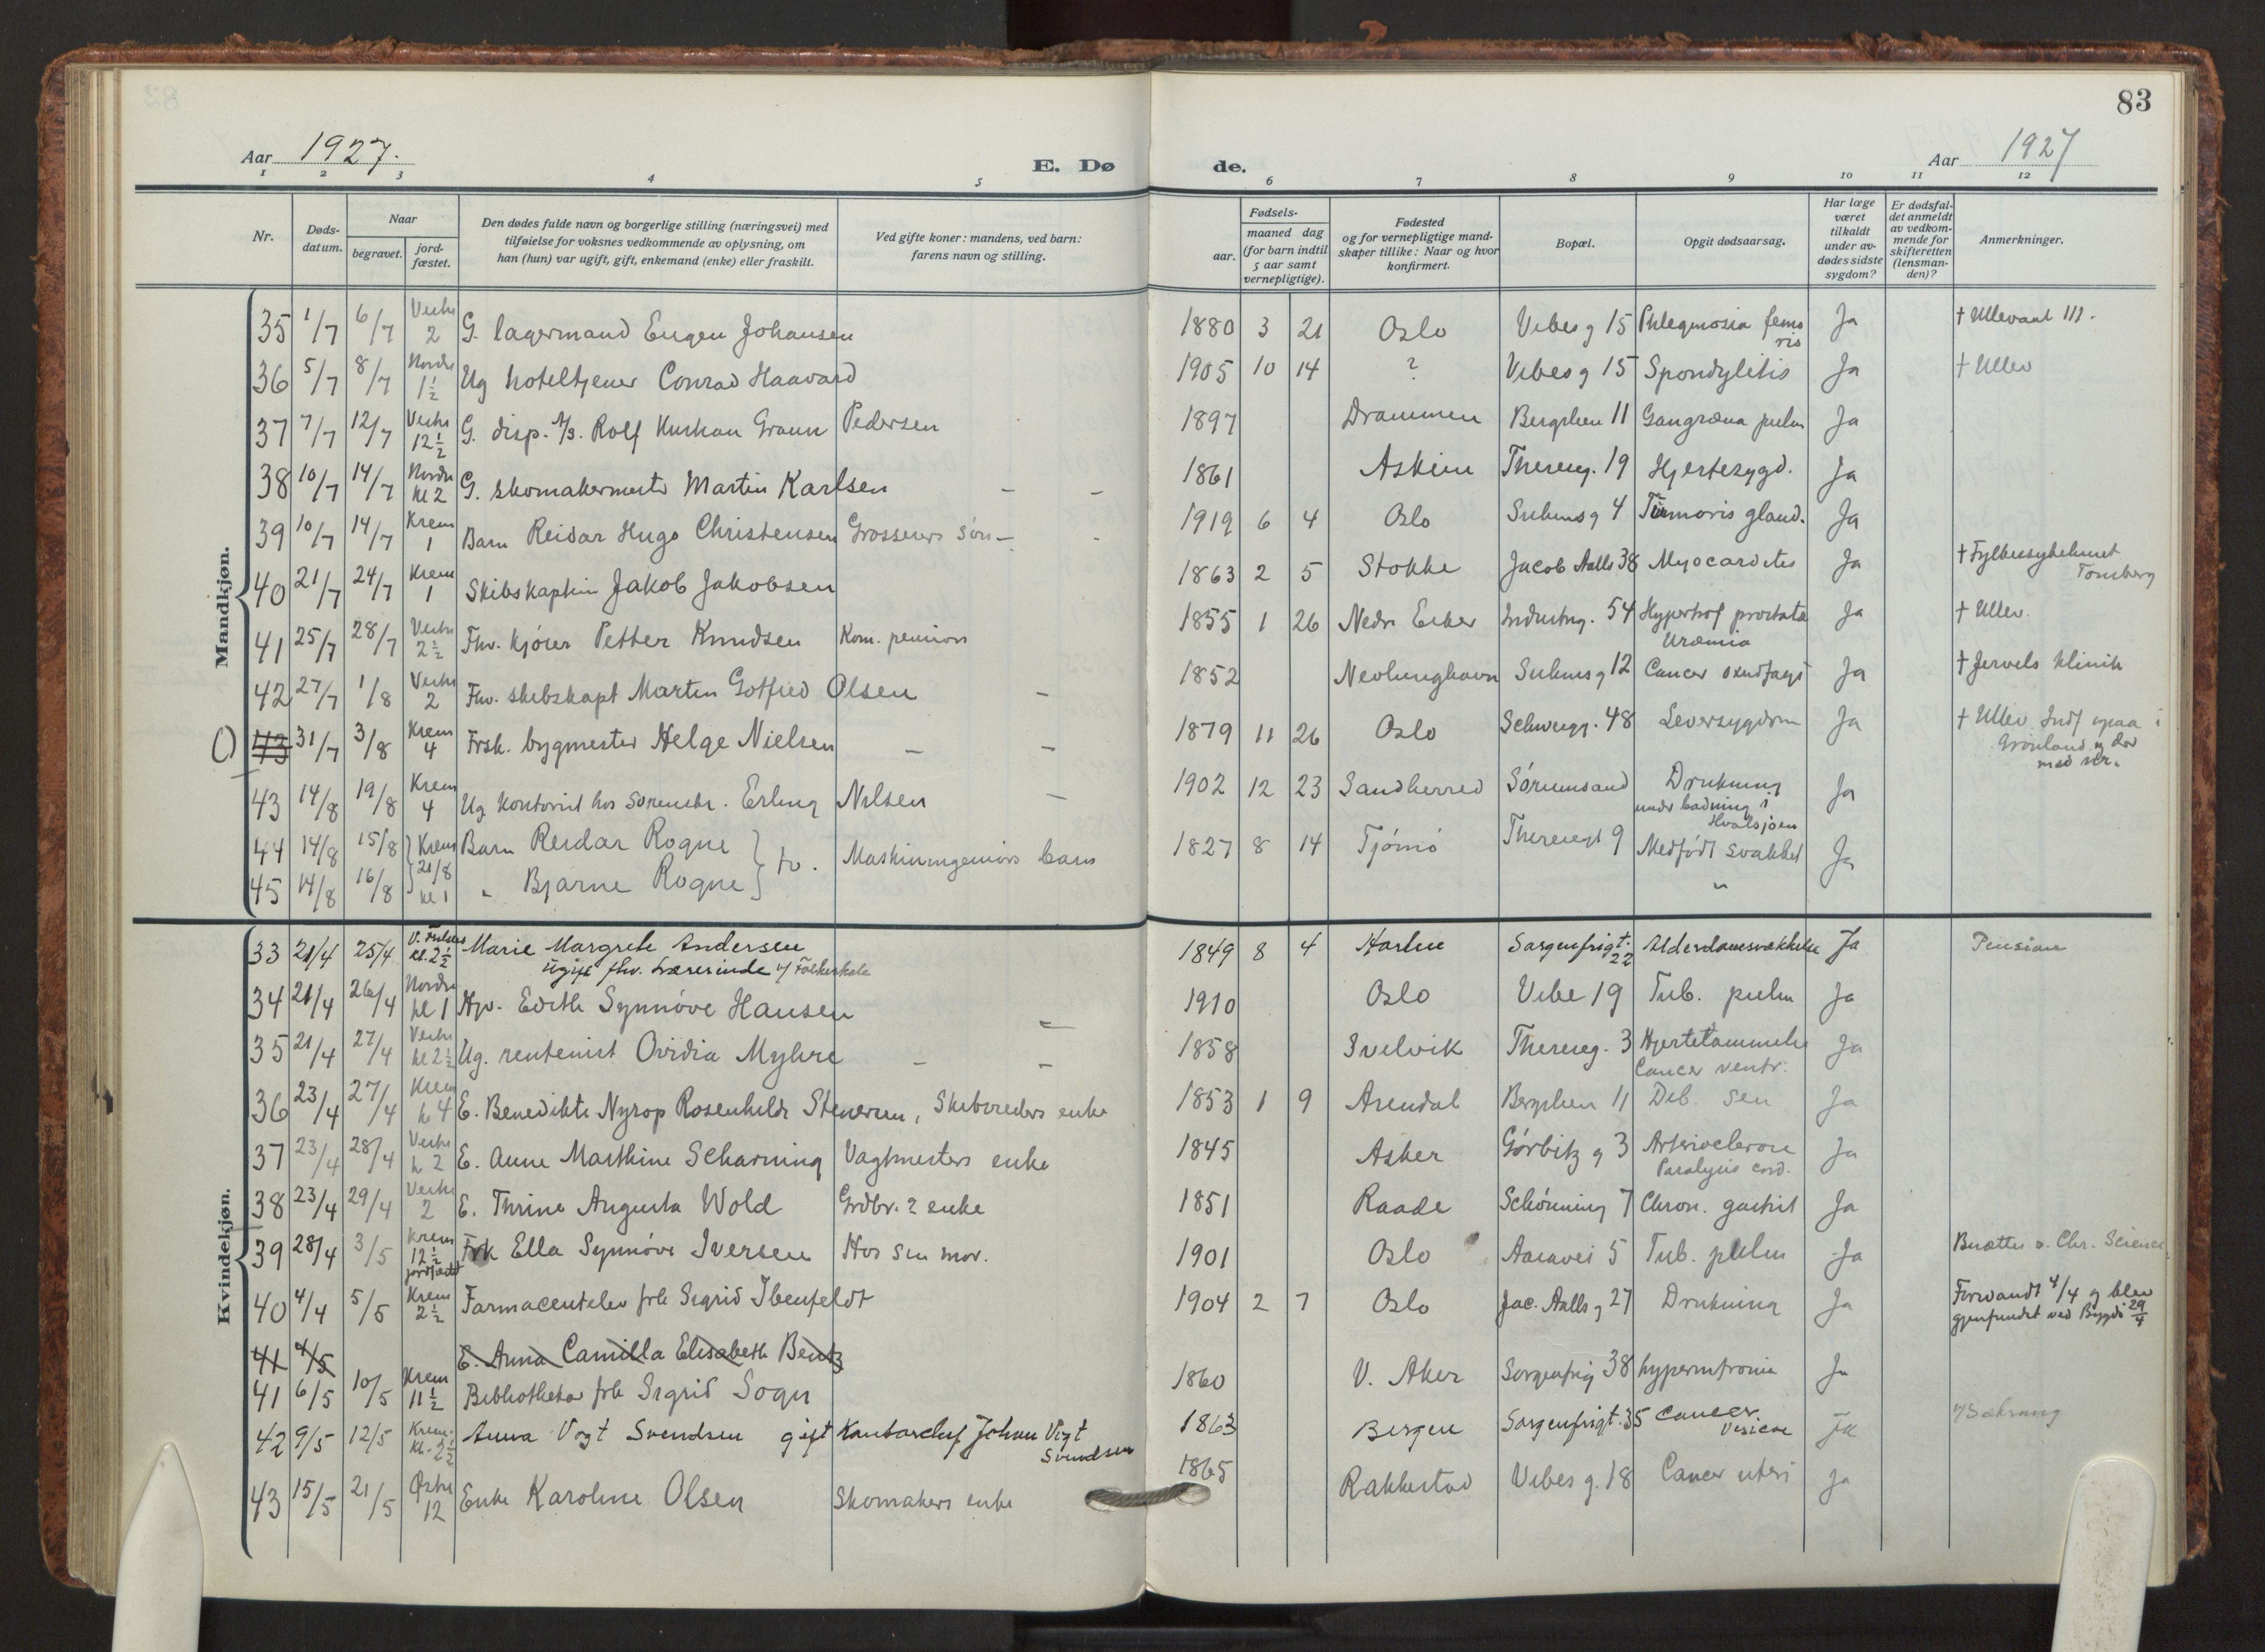 83
Aar 1927. E. Dø de. Aar 1927
1 2 3 4 5 6 7 8 9 10 11 12
Nr. Døds-datum. Naar begravet. jord-fæstet. Den dødes fulde navn og borgerlige stilling (næringsvei) med tilføielse for voksnes vedkommende av oplysning, om han (hun) var ugift, gift, enkemand (enke) eller fraskilt. Ved gifte koner: mandens, ved barn: farens navn og stilling. Fødsels- aar. maaned dag (for barn indtil 5 aar samt vernepligtige). Fødested og for vernepligtige mand-skaper tillike: Naar og hvor konfirmert. Bopæl. Opgit dødsaarsag. Har læge været tilkaldt under av-dødes sidste sygdom? Er dødsfal-det anmeldt av vedkom-mende for skifteretten (lensman-den)? Anmerkninger.
Mandkjøn.
35 1/7 6/7 2 G. lagermand Eugen Johansen 1880 3 21 Oslo Vibesg 15 Ja † Ullevaal III.
36 5/7 8/7 Nordre 1½ Ug hoteltjener Conrad Haavard 1905 10 14 ? Vibesg 15 Spondylitis Ja † Ullev
37 7/7 12/7 12½ G. disp. A/S. Rolf Graun Pedersen 1897 Drammen Bergslien 11 Gangræna pulm Ja
38 10/7 14/7 Nordre kl 2 G. skomakermester Martin Karlsen – – 1861 Askim Thereseg. 19 Hjertesygd. Ja
39 10/7 14/7 Krem 1 Barn Reidar Hugo Christensen Grosserers søn – 1919 6 4 Oslo Suhmsg 4 Tumoris gland. Ja
40 21/7 24/7 Krem 1 Skibskaptein Jakob Jakobsen 1863 2 5 Stokke Jacob Aalls 38 Myocardites Ja † Fylkessykehuset Tønsberg
41 25/7 28/7 2½ Fhv. kjører Petter Knudsen Kom. pensions 1855 1 26 Nedre Eker Industrig. 54 Hypertrof prostata Uræmia Ja † Ullev.
42 27/7 1/8 2 Fhv. skibskapt Martin Gotfred Olsen – 1852 Nevlunghavn Suhmsg 12 Cancer Ja † Jervels klinik
43 31/7 3/8 Krem 4 Frsk. bygmester Helge Nielsen – – 1879 11 26 Oslo Schweigg. 48 Leversygdom Ja † Ullev. Indf ogsaa i Grønland og der med nr.
43 14/8 19/8 Krem 4 Ug kontorist hos Erling Nilsen – 1902 12 23 Sandherred Sørumsand Drukning under badning i Hvalsjøen Ja
44 14/8 15/8 Krem Barn Reidar Rogne tv. Maskiningeniørs barn 1827 8 14 Tjømø Theresegt 9 Medfødt svakhet Ja
45 14/8 16/8 21/8 kl 1 " Bjarne Rogne "
Kvindekjøn.
33 21/4 25/4 kl. 2½ Marie Margrete Andersen 1849 8 4 Sorgenfrigt. 22 Alderdomsvækkelse Ja Pension
ugift fhv. Lærerinde v/ Folkeskole
34 21/4 26/4 Nordre kl 1 Hjv. Edith Synnøve Hansen – 1910 Oslo Vibe 19 Tub. pulm Ja
35 21/4 27/4 kl 2½ Ug. rentenist Ovidia Myhre – – 1858 Svelvik Thereseg. 3 Hjertelammelse Cancer ventr. Ja
36 23/4 27/4 Krem k 4 E. Benedikte Nyrop Rosenkilde Stenersen, Skibsreders enke 1853 1 9 Arendal Bergslien 11 Deb. sen Ja
37 23/4 28/4 k 2 E. Anne Marthine Scharning Vagtmesters enke 1845 Asker Gørbitz g 3 Paralysis cord. Ja
38 23/4 29/4 2 E. Thrine Augusta Wold Grdbr. ? enke 1851 Raade Schønning 7 Chron. gastrit Ja
39 28/4 3/5 Krem 12½ jordfæstet Frk Ella Synnøve Iversen Hos sin mor. 1901 Oslo Aaravei 5 Tub. pulm Ja Chr. Science
40 4/4 5/5 Krem 2½ Farmaceutelev frk Sigrid Ibenfeldt 1904 2 7 Oslo Jac. Aallsg 27 Drukning Ja Forsvandt 4/4 og blev gjenfundet ved Bygdø 29/4
41 4/5 E. Anna Camilla Elisabeth Bentz
41 6/5 10/5 Krem 11½ Bibliothekar frk Sigrid Sogn 1860 V. Aker Sorgenfrig 38 Ja
42 9/5 12/5 Krem. kl. 2½ Anna Vogt Svendsen gift Kontorchef Johan Vogt Svendsen 1863 Bergen Sorgenfrigt. 35 Cancer Ja
43 15/5 21/5 Østre 12 Enke Karoline Olsen Skomakers enke 1865 Rakkestad Vibesg. 18 Cancer uteri Ja